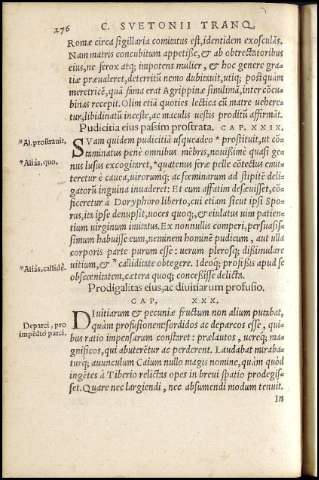 276 C. SVETONII TRANQ.
Romæ circa sigillaria comitatus est, identidem exosculās.
Nam matris concubitum appetisse, & ab obtrectatoribus
eius, ne ferox atq; impotens mulier, & hoc genere gra-
tiæ præualeret, deterritū nemo dubitauit, utiq; postquàm
meretricē, quā fama erat Agrippinæ similimā, inter cōcu-
binas recepit. Olim etiā quoties lectica cū matre uehere-
tur, libidinatū incestè, ac maculis uestis proditū affirmāt.
Pudicitia eius passim prostrata. CAP. XXIX.
*Al. prostrauit.
SVam quidem pudicitiā usqueadeo *prostituit, ut cō-
taminatus penè omnibus mēbris, nouissimè quasi ge-
*Aliàs. quo.
nus lusus excogitaret, *quatenus feræ pelle cōtectus emit-
teretur è cauea, uirorumq; ac fœminarum ad stipitē deli-
gatorū inguina inuaderet: Et cum affatim desæuisset, cō-
ficeretur à Doryphoro liberto, cui etiam sicut ipsi Spo-
rus, ita ipse denupsit, uoces quoq;, & eiulatus uim patien-
tium uirginum imitatus. Ex nonnullis comperi, persuasis-
simum habuisse eum, neminem hominē pudicum, aut ulla
corporis parte purum esse: uerum plerosq; dissimulare
*Aliàs, callidè.
uitium, & *calliditate obtegere. Ideoq; professis apud se
obscœnitatem, cætera quoq; concessisse delicta.
Prodigalitas eius, ac diuitiarum profusio.
CAP. XXX.
Deparci, pro
impēdiò parci.
DIuitiarum & pecuniæ fructum non alium putabat,
quàm profusionem: sordidos ac deparcos esse, quibus
bus ratio impensarum constaret: prælautos, uereq; ma-
gnificos, qui abuterētur ac perderent. Laudabat miraba-
turq; auunculum Caium nullo magis nomine, quàm quòd
ingētes à Tiberio relictas opes in breui spatio prodegis-
set. Quare nec largiendi, nec absumendi modum tenuit.
In